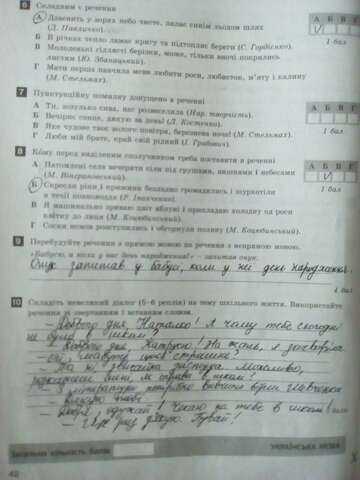 6 Складним є речення
А Дзвенить у зорях небо чисте, палає синім льодом шлях
(Д. Павличко).
Б В річках тепло ламає кригу та підтоплює береги (С. Гордієнко).
В Молоденькі гіллясті берізки, може, тільки вночі покрились
листям (Ю. Збанацький).
Г Мати перша навчила мене любити роси, любисток, м'яту і калину
(М. Стельмах).
А Б В Г
1 бал
7 Пунктуаційну помилку допущено в реченні
А Ти, зозулько сива, нас розвеселила (Нар. творчість).
Б Вечірнє сонце, дякую за день! (Л. Костенко).
В Яке чудове твоє вологе повітря, березнева ноче! (М. Стельмах).
Г Люби мій брате, край свій рідний (І. Грабович).
А Б В Г
1 бал
8 Кому перед виділеним сполучником треба поставити в реченні
А Натомлені села вечеряти сіли під грушами, вишнями і небесами
(М. Вінграновський).
Б Скресали ріки і крижини безладно громадились і шуркотіли
в течії повноводдя (Г. Іванченко).
В Я машинально зриваю цвіт яблуні і прикладаю холодну од роси
квітку до лиця (М. Коцюбинський).
Г Сосни немов розступились і обгорнули поляну (М. Коцюбинський).
А Б В Г
1 бал
9 Перебудуйте речення з прямою мовою на речення з непрямою мовою.
«Бабусю, а коли у вас день народження?» – запитав онук.
Онук запитав у бабусі, коли у неї день народження.
1 бал
10 Складіть невеликий діалог (5–6 реплік) на тему шкільного життя. Використайте
речення зі звертанням і вставним словом.
– Доброго дня, Наталко! А чому тебе сьогодні
не було в школі?
– Доброго дня, Катрусю! На жаль, я захворіла
– Ой, мабуть щось страшне?
– Та ні, звичайна застуда. Можливо,
підкажеш мені, м справи в школі?
– З літератури потрібно вивчити вірш Шевченка
– Дякую, одужай! Чекаю на тебе в школі!
– Ще раз дякую. Бувай!
Загальна кількість балів
УКРАЇНСЬКА МОВА
42